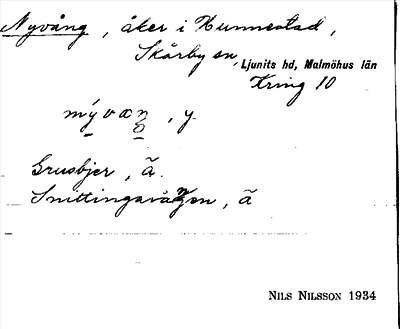 Nyvång, åker i Hunnestad,
Skårby sn, Ljunits hd, Malmöhus län
Kring 10
y.
Grusbjer, ã.
Snittingavången, ã
NILS NILSSON 1934